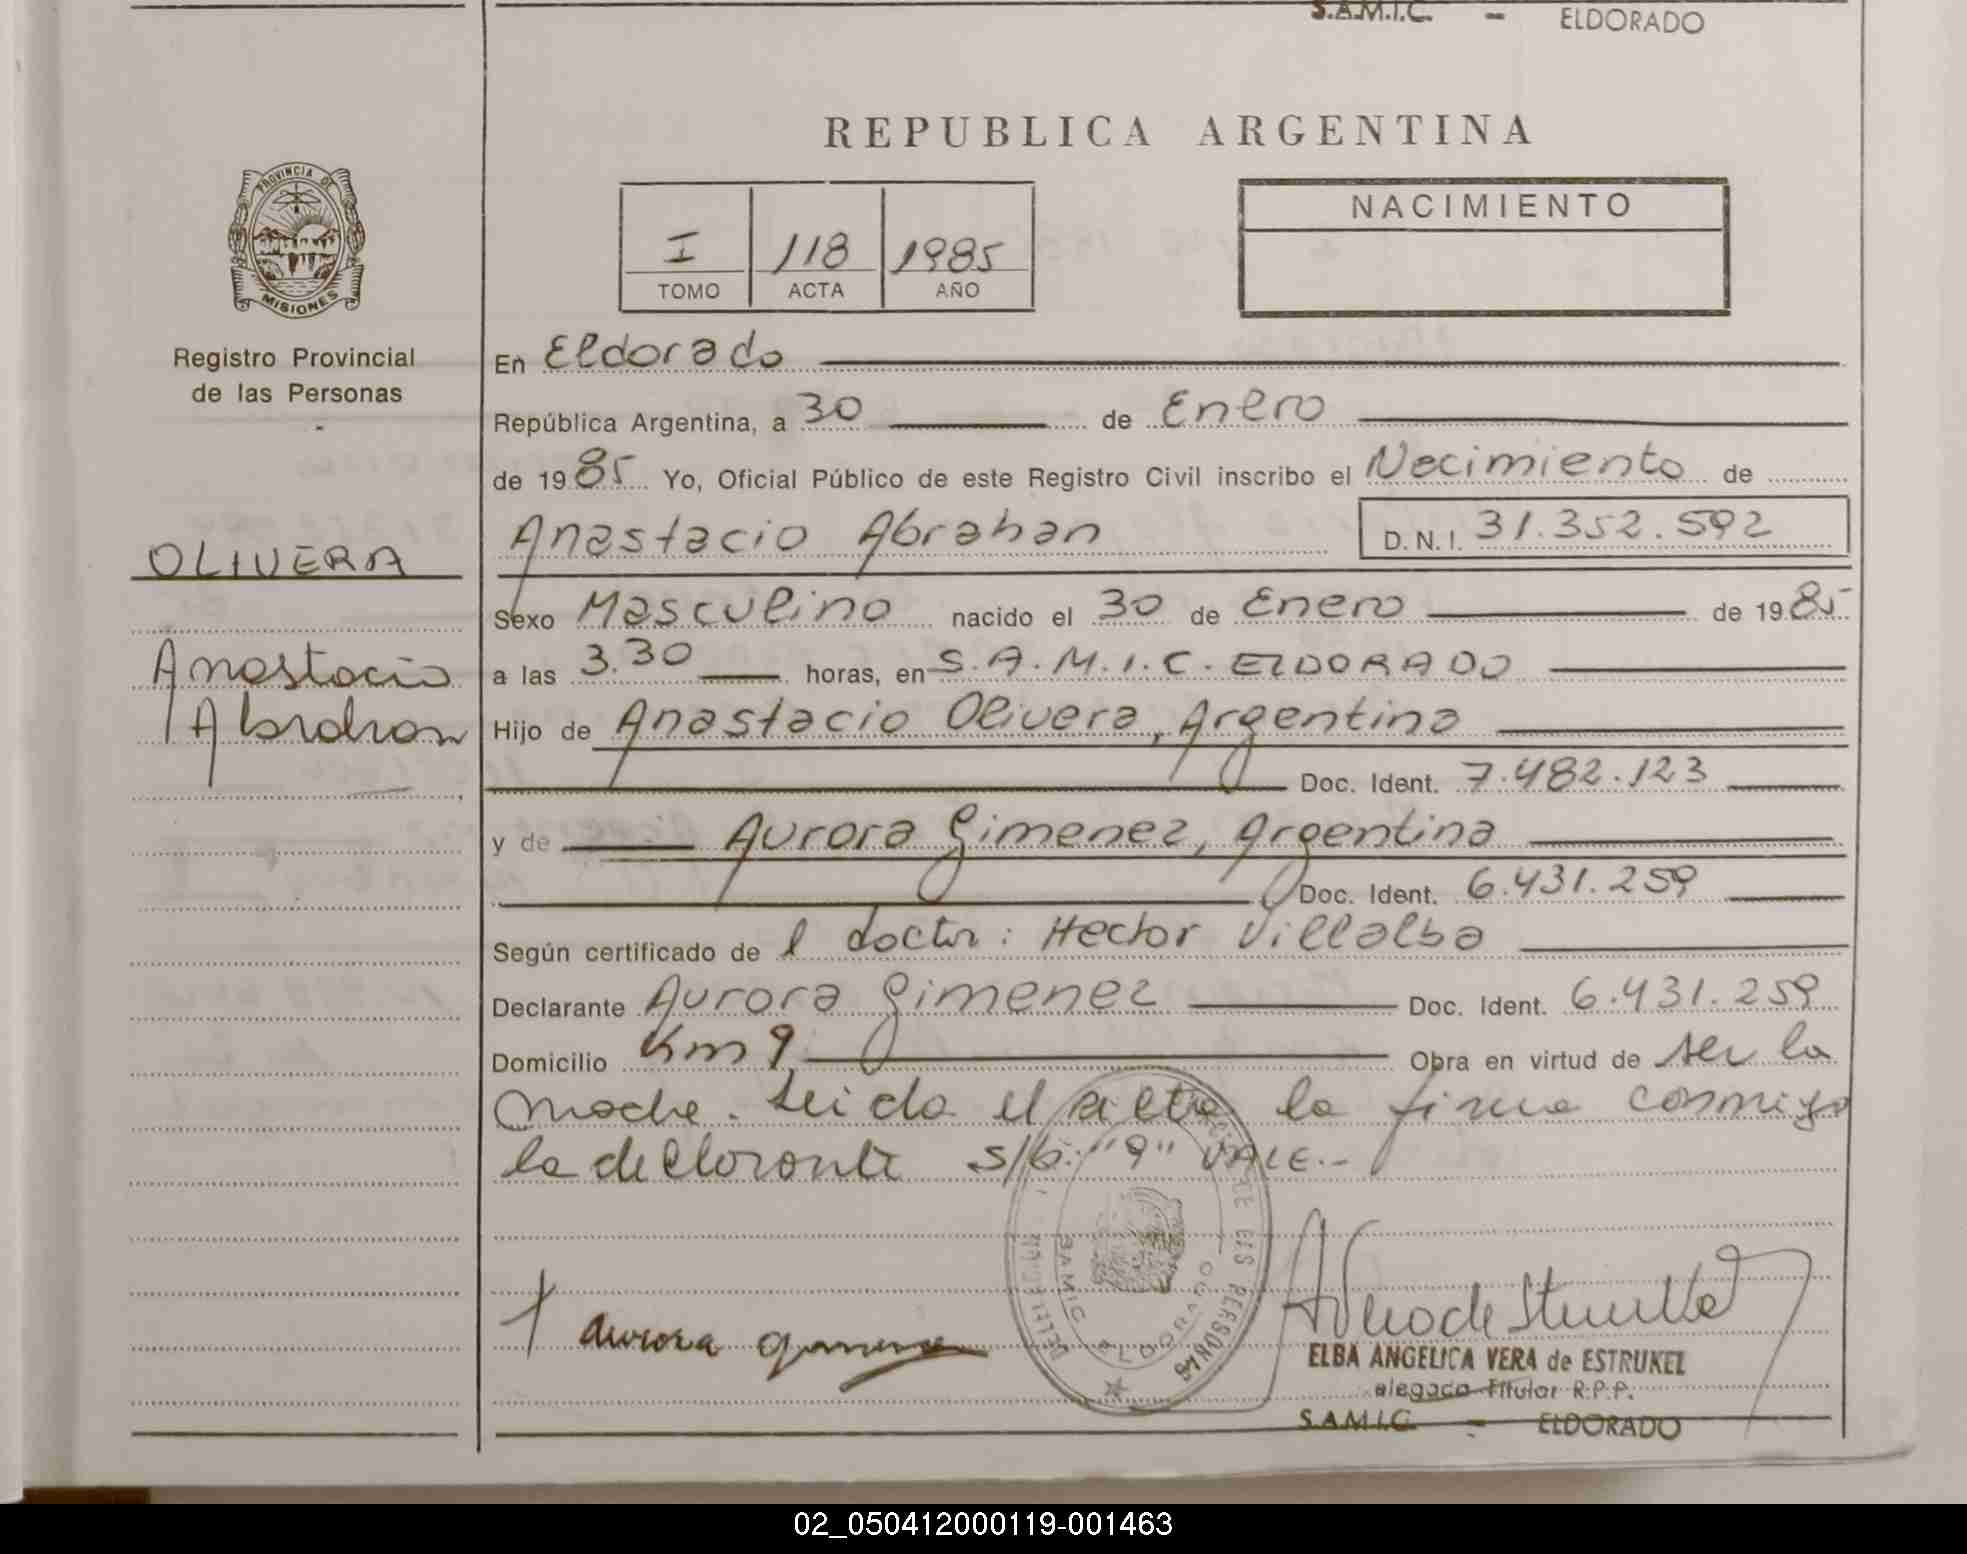 S.A.M.I.C. - ELDORADO
REPUBLICA ARGENTINA
PROVINCIA DE
MISIONES
Registro Provincial
de las Personas
I 118 1985
TOMO ACTA AÑO
NACIMIENTO
En Eldorado
República Argentina, a 30 de Enero
de 1985 Yo, Oficial Público de este Registro Civil inscribo el Nacimiento de
OLIVERA
Anastacio Abrahan
Anastacio Abrahan D.N.I. 31.352.592
Sexo Masculino nacido el 30 de Enero de 1985
a las 3.30 horas, en S.A.M.I.C. ELDORADO
Hijo de Anastacio Olivera, Argentino
Doc. Ident. 7.482.123
y de Aurora Gimenez, Argentina
Doc. Ident. 6.431.259
Según certificado de l doctor: Hector Villalba
Declarante Aurora Gimenez Doc. Ident. 6.431.259
Domicilio Km 9 Obra en virtud de ser la
madre. Leida el acta la firma conmigo
la declarante s/b: "9" VALE.-
SAMIC ELDORADO
DE LAS PERSONAS
Aurora gimenez
ELBA ANGELICA VERA de ESTRUKEL
elegada Titular R.P.P.
S.A.M.I.C. - ELDORADO
02_050412000119-001463